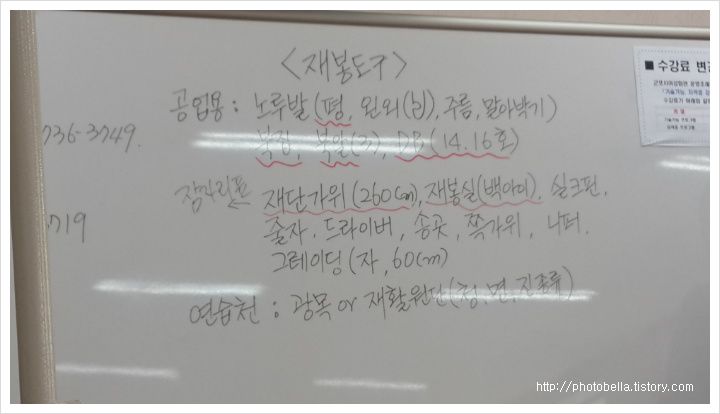 <재봉도구>
공업용 : 노루발(평, 외외(심), 주름, 말아박기)
736-3749.
북집, 북알(3), DB(14.16호)
장미라폼 재단가위(260cm), 재봉실(백아이), 실크핀,
719
줄자, 드라이버, 송곳, 쪽가위, 너퍼,
그레이딩(자, 60cm)
연습천 : 광목 or 재활원단(청, 면, 진종류)
■ 수강료 변경
http://photobella.tistory.com